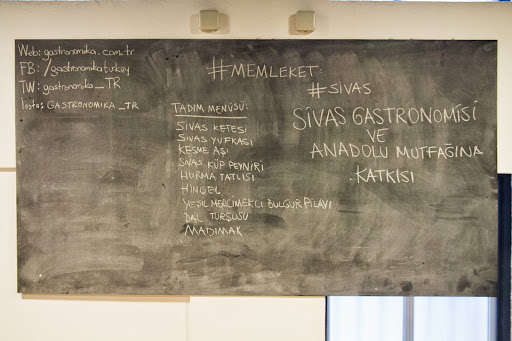 Web: gastronomika.com.tr
FB: /gastronomikaturkey
TW: gastronomika_TR
Insta: GASTRONOMIKA_TR
#MEMLEKET:
#SİVAS
SİVAS GASTRONOMİSİ
VE
ANADOLU MUTFAĞINA
KATKISI
TADIM MENÜSÜ:
SİVAS KETESİ
SİVAS YUFKASI
KESME AŞI
SİVAS KÜP PEYNİRİ
HURMA TATLISI
HİNGEL
YEŞİL MERCİMEKLİ BULGUR PİLAVI
DAL TURŞUSU
MADIMAK